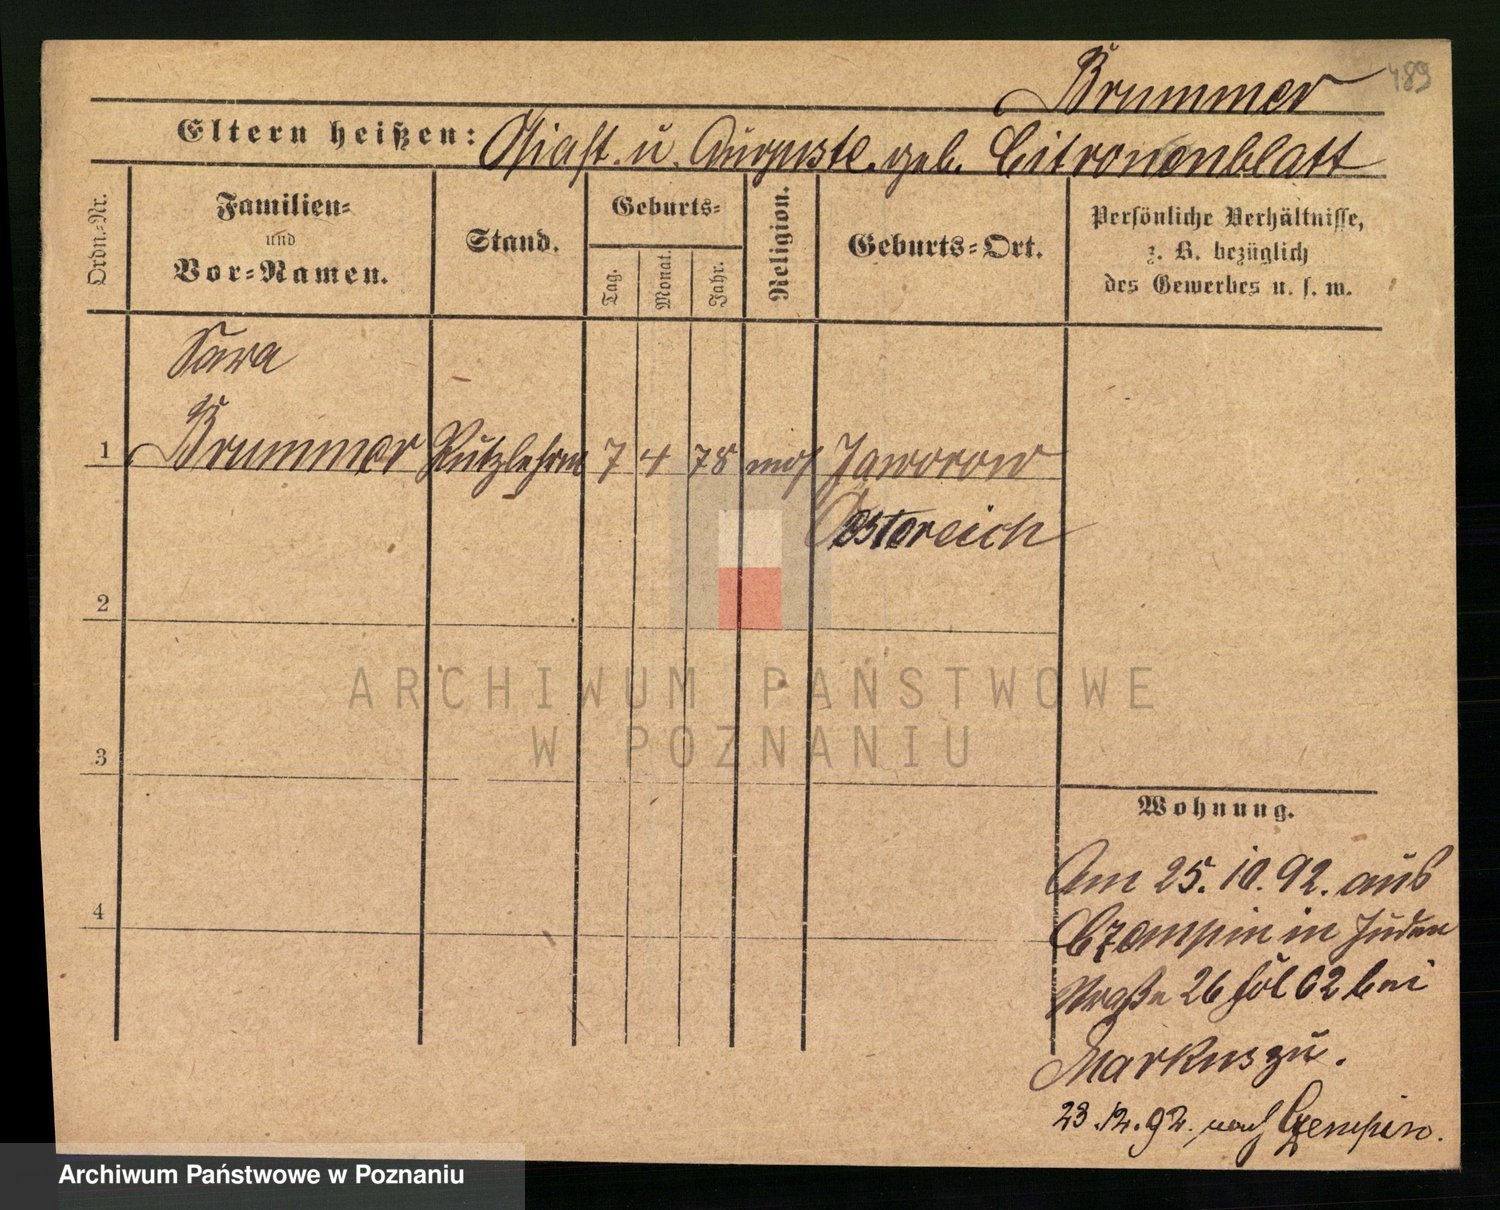 Brummer
489
Eltern heißen: u. Auguste. geb. Citronenblatt
Ordn.-Nr.
Familien-
und
Vor-Namen.
Stand.
Geburts-
Tag.
Monat.
Jahr.
Religion.
Geburts-Ort.
Persönliche Verhältnisse,
z. B. bezüglich
des Gewerbes u. s. w.
Sara
1 Brummer Putzlehrm 7 4 78 mos Jaworow
Östereich
2
ARCHIWUM PAŃSTWOWE
W POZNANIU
3
Wohnung.
4
Am 25.10.92. aus
Czempin in Juden
Straße 26 bei
Markus zu.
23.12.92. nach Czempin.
Archiwum Państwowe w Poznaniu